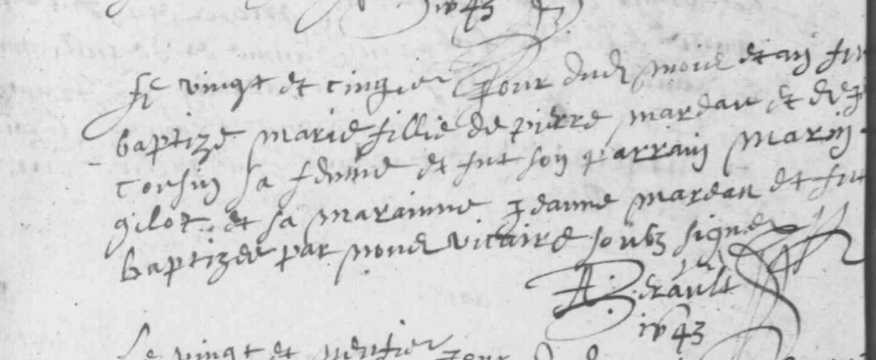 1643
Le vingt et cinqier Jour dud mois et an fut
baptize marie fillie de pierre mardau et de
cousin sa femme et fut son parrain marin
gilot et sa marainne Jeanne mardau et fut
baptizee par nous vicaire soubz signe
A. Berault
1643
Le vingt et Jour